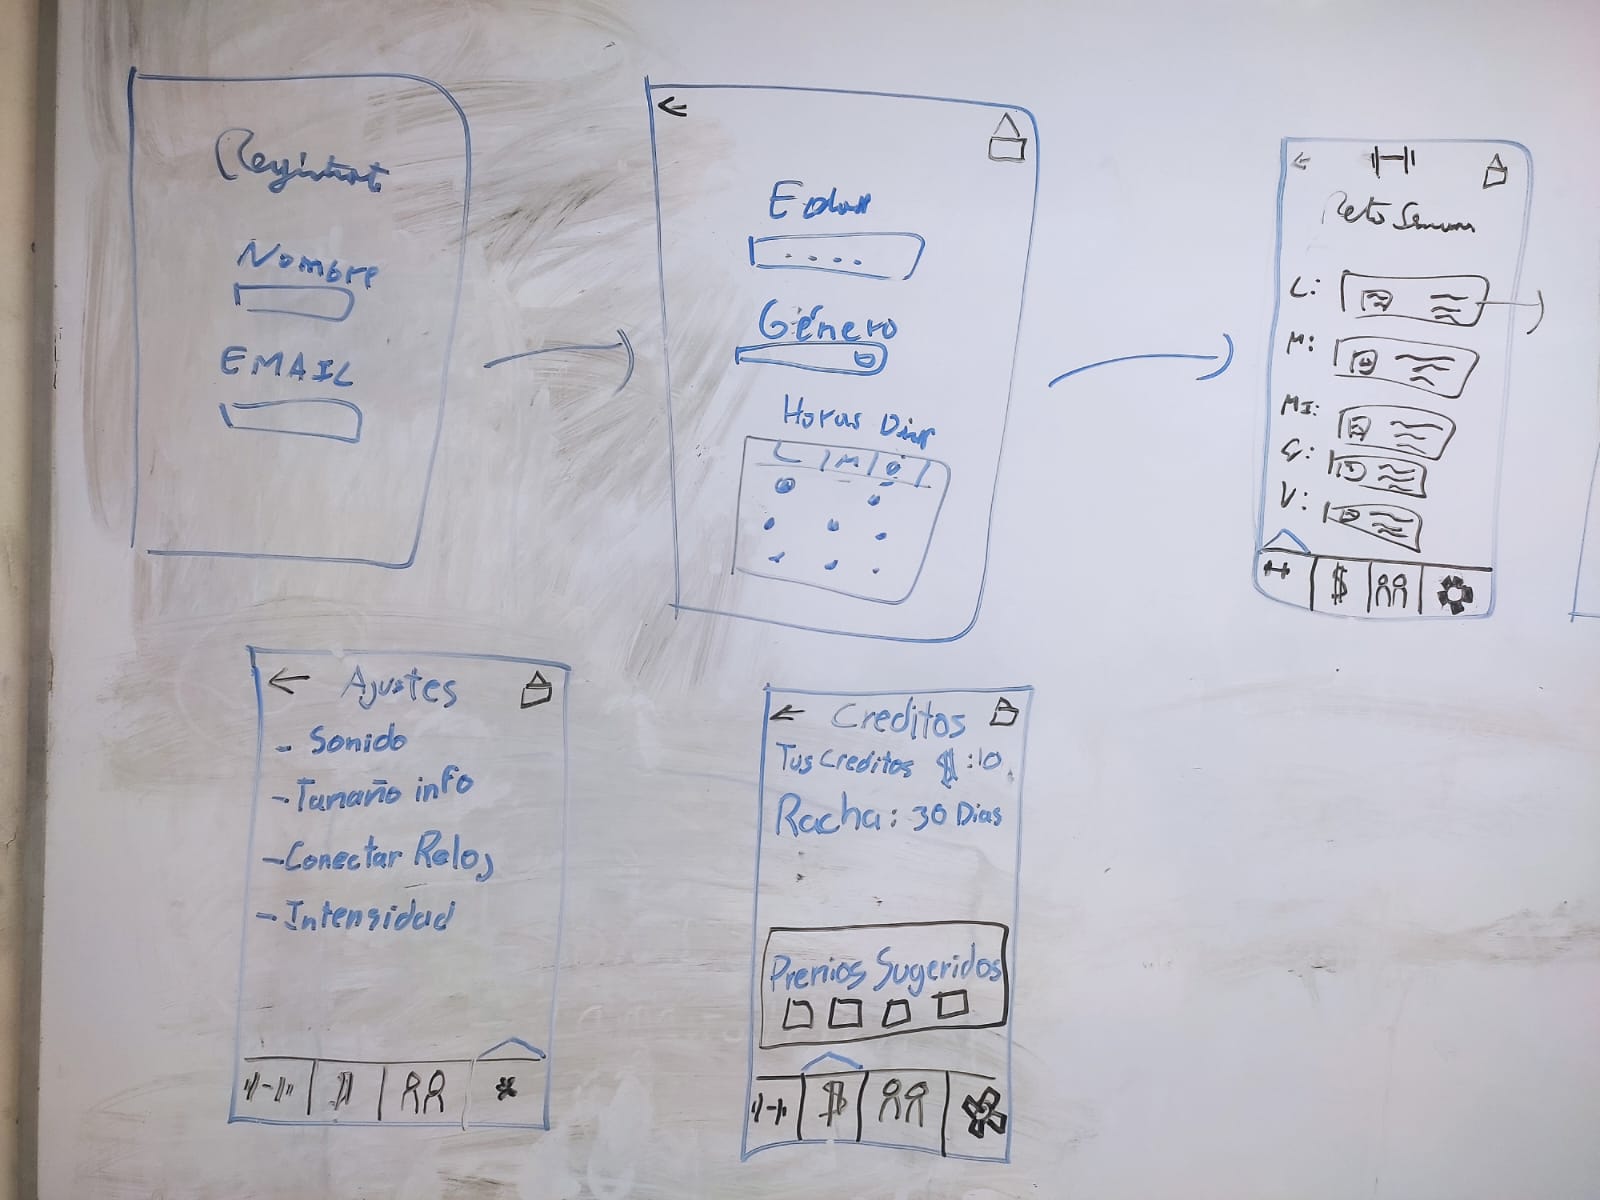 Registrat
Nombre
EMAIL
Edad
Género
Horas Dias
L | M |
Reto Seman
L:
M:
MI:
V:
$
Ajustes
- Sonido
- Tamaño info
- Conectar Reloj
- Intensidad
$
Creditos
Tus Creditos $:10
Racha: 30 Dias
Premios Sugeridos
$